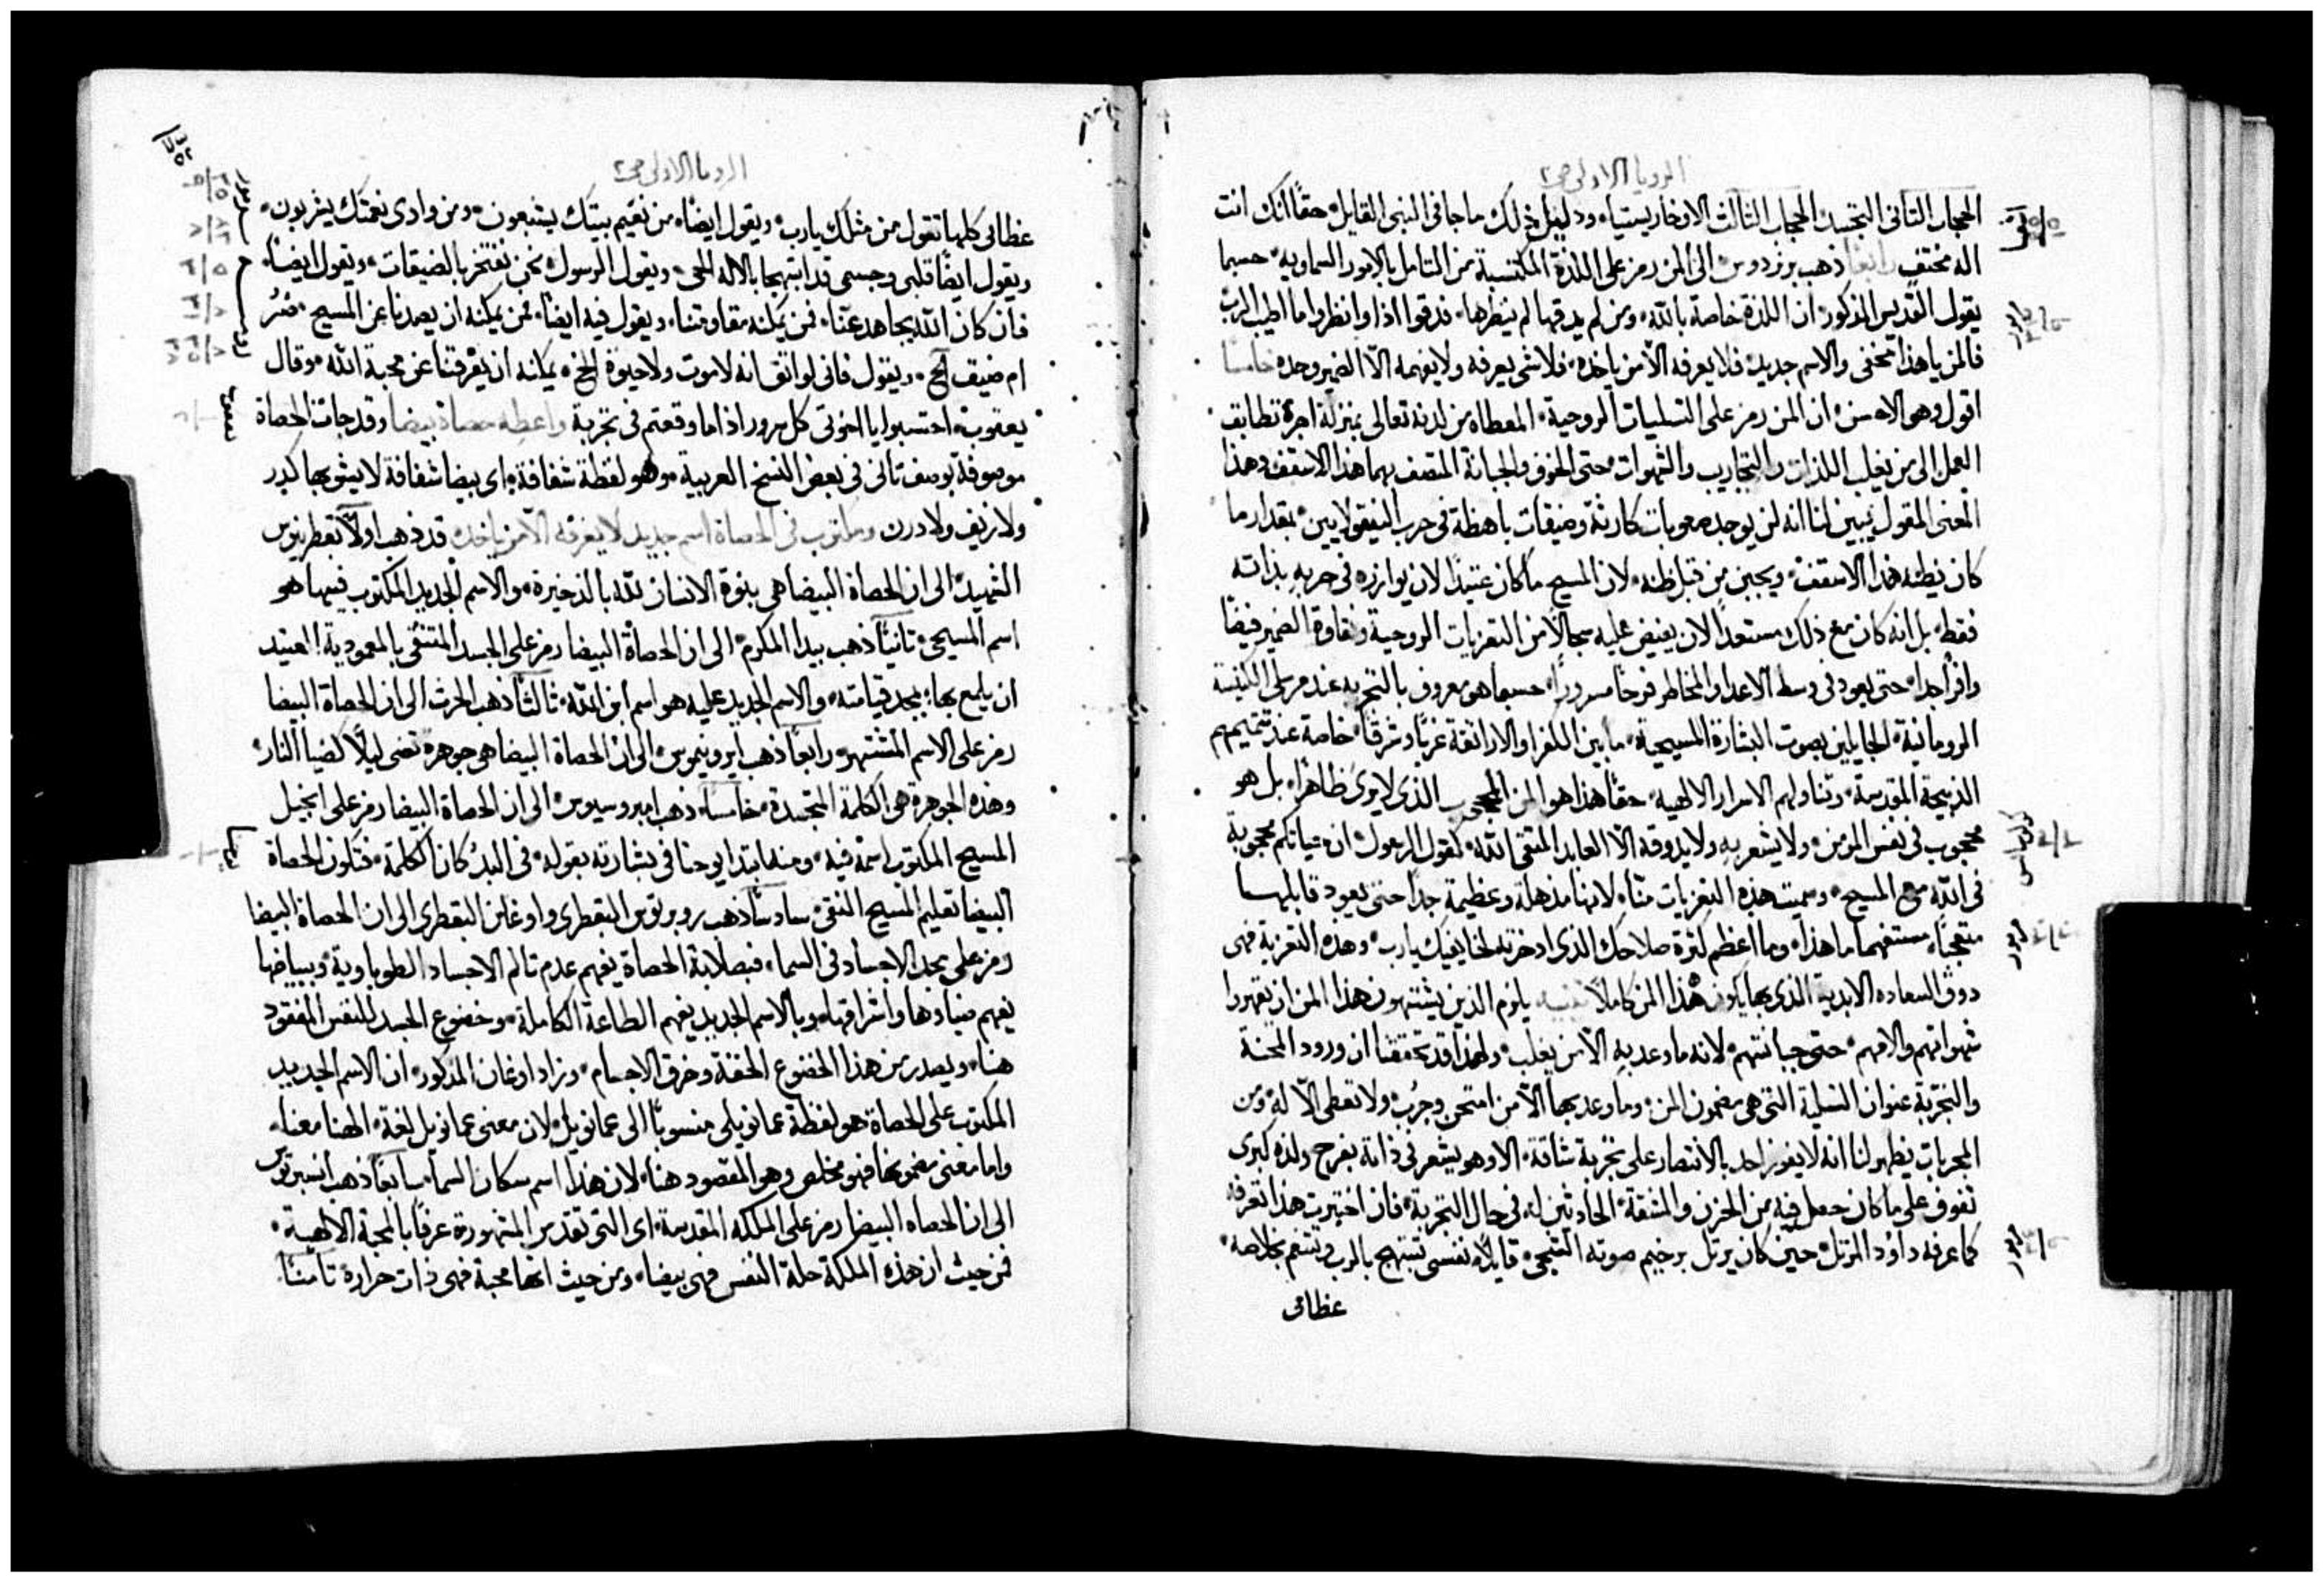 الرويا الاولى ص٢
الحجاب الثانى التجسد الحجاب الثالث الاوخارستيا ودليل ذلك ما جا فى النبى القايل حقًا انك انت
اله مختفٍ رابعًا ذهب برنردوس الى ان المن رمز على اللذة المكتسبة من التامل بالامور السماويه حسبما
يقول القديس المذكور ان اللذة خاصة بالله ومن لم يدقها لم ينظرها فدقوا اذا وانظروا ما اطيب الرب
فالمن يا هذا مخفى والاسم جديد فلا يعرفه الّا من ياخذه فلا شى يعرفه ولا يفهمه الّا الضمير وحده خامسًا
اقول وهو الاحسن ان المن رمز على التسليات الروحية المعطاه من لدنه تعالى بمنزلة اجرة تطابق
العمل الى من يغلب اللذات والتجارب والشهوات حتى الخوف والجبانة المتصف بهما هذا الاسقف وهذا
المعنى المقول يبين لنا انه لن يوجد صعوبات كارثة وضيقات باهظة فى حرب النيقولايين بمقدار ما
كان يظنه هذا الاسقف ويجبن من قبل ظنه لان المسيح ما كان عتيدًا لان يوازره فى حربه بذاته
فقط بل انه كان مع ذلك مستعدًا لان يفيض عليه سجالًا من التعزيات الروحية ونقاوة الضمير فيضًا
وافرًا جدا حتى يعود فى وسط الاعدا والمخاطر فرحًا مسرورًا حسبما هو معروف بالتجربه عند مرسلى الكنيسة
الرومانية الجايلين بصوت البشارة المسيحية ما بين الكفر والاراتقة غربًا وشرقًا خاصة عند تتميمهم
الذبيحة المقدسة وتناولهم الاسرار الالهية حقًا هذا هو المن المحجوب الذى لا يرى ظاهرًا بل هو
محجوب فى نفس المومن ولا يشعر به ولا يدوقه الّا العابد المتقى الله كقول الرسول ان حياتكم محجوبة
فى الله مع المسيح وسميت هذه التعزيات منًا لانها مذهلة وعظيمة جدًا حتى يعود قابلها
متعجبًا مستفهمًا ما هذا وما اعظم كثرة صلاحك الذى ادخرته لخايفيك يارب وهذه التعزية فهى
دوق السعاده الابدية الذى بها يكون هذا المن كاملًا تنبيه يلزم الذين يشتهون هذا المن ان يقهروا
شهواتهم والامهم حتى جبانتهم لانه ما وعد به الّا من يغلب ولهذا قد تحققنا ان ورود المحنة
والتجربة عنوان التسلية التى هى مضمون المن وما وعد بها الّا من امتحن وجُرب ولا تعطى الّا له ومن
المجربات يظهر لنا انه لا يفوز احد بالانتصار على تجربة شاقة الا وهو يشعر فى ذاته بفرح ولذه كبرى
تفوق على ما كان حصل فيه من الحزن والمشقة الحادثين له فى حال التجربة فان اختبرت هذا تعرفه
كما عرفه داوُد المرتل حين كان يرتل برخيم صوته الشجى قايلًا نفسى تبتهج بالرب وتتنعم بخلاصه
عظامى
الرويا الاولى ص٢
عظامى كلها تقول من مثلك يارب ويقول ايضًا من نعيم بيتك يشبعون ومن وادى نعمتك يشربون
ويقول ايضًا قلبى وجسمى قد ابتهجا بالاله الحى ويقول الرسول نحن نفتخر بالضيقات ويقول ايضًا
فان كان الله يجاهد عنّا فمن يمكنه مقاومتنا ويقول فيه ايضًا فمن يمكنه ان يصدنا عن المسيح ضُرُ
ام ضيق الخ ويقول فانى لواثق انه لا موت ولا حيوة الخ يمكنه ان يفرقنا عن محبة الله وقال
يعقوب احتسبوا يا اخوتى كل سرور اذا ما وقعتم فى تجربة واعطِه حصاة بيضا وقد جات الحصاة
موصوفة بوصف ثانى فى بعض النسخ العربية وهو لفظة شفافة اى بيضا شفافة لا يشوبها كدر
ولا زيف ولا درن ومكتوب فى الحصاة اسم جديد لا يعرفه الّا من ياخذه قد ذهب اولًا بقطرينوس
الشهيد الى ان الحصاة البيضا هى بنوة الانسان لله بالذخيرة والاسم الجديد المكتوب فيها هو
اسم المسيحى ثانيًا ذهب بيدا المكرم الى ان الحصاة البيضا رمز على الجسد المتنقى بالمعمودية العتيد
ان يلمع بها بمجد قيامته والاسم الجديد عليه هو اسم ابن الله ثالثًا ذهب الحرث الى ان الحصاة البيضا
رمز على الاسم المشتهر رابعًا ذهب ايرونيموس الى ان الحصاة البيضا هى جوهرة تضى ليلًا كضيا النار
وهذه الجوهرة هى الكلمة المتجسدة خامسًا ذهب امبروسيوس الى ان الحصاة البيضا رمز على انجيل
المسيح المكتوب اسمه فيه ومنه ابتدا يوحنا فى بشارته بقوله فى البدُ كان الكلمة فتكون الحصاة
البيضا تعليم المسيح النقى سادسًا ذهب روبرتوس البقطرى واوغلن البقطرى الى ان الحصاة البيضا
رمز على مجد الاجساد فى السما فبصلابة الحصاة يفهم عدم تالم الاجساد الطوباوية وببياضها
يفهم ضياوها واشراقها وبالاسم الجديد يفهم الطاعة الكاملة وخضوع الجسد للنفس المفقود
هنا ويصدر من هذا الخضوع الخفة وخرق الاجسام وزاد اوغان المذكور ان الاسم الجديد
المكتوب على الحصاة هو لفظة عمانويلى منسوبًا الى عمانويل لان معنى عمانويل لغة الهنا معنا
واما معنى مضمونها فهو مخلص وهو المقصود هنا لان هذا اسم سكان السما سابعًا ذهب انسبرتوس
الى ان الحصاه البيضا رمز على الملكه المقدسة اى التى تقدس المشهورة عرفًا بالمحبة الالهية
فمن حيث ان هذه الملكة حلة النفس فهى بيضا ومن حيث انها محبة فهى ذات حرارة ثامنًا